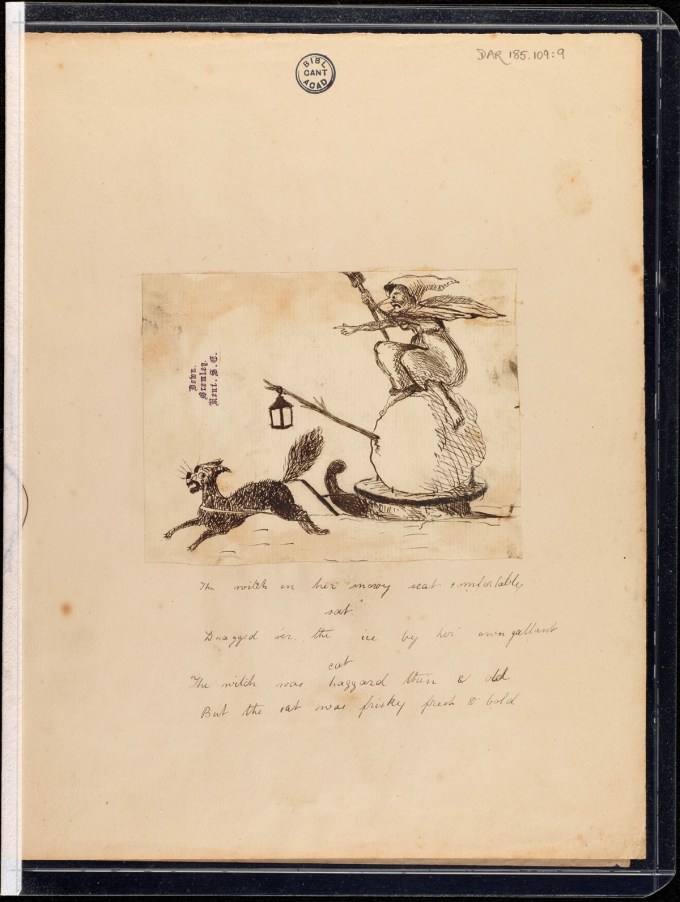 DAR 185.109:9
BIBL
CANT
ACAD
Down.
Bromley.
Kent. S.E.
The witch on her snowy seat comfortably
sat
Dragged o'er the ice by her own gallant
cat
The witch was haggard thin & old
But the cat was frisky fresh & bold